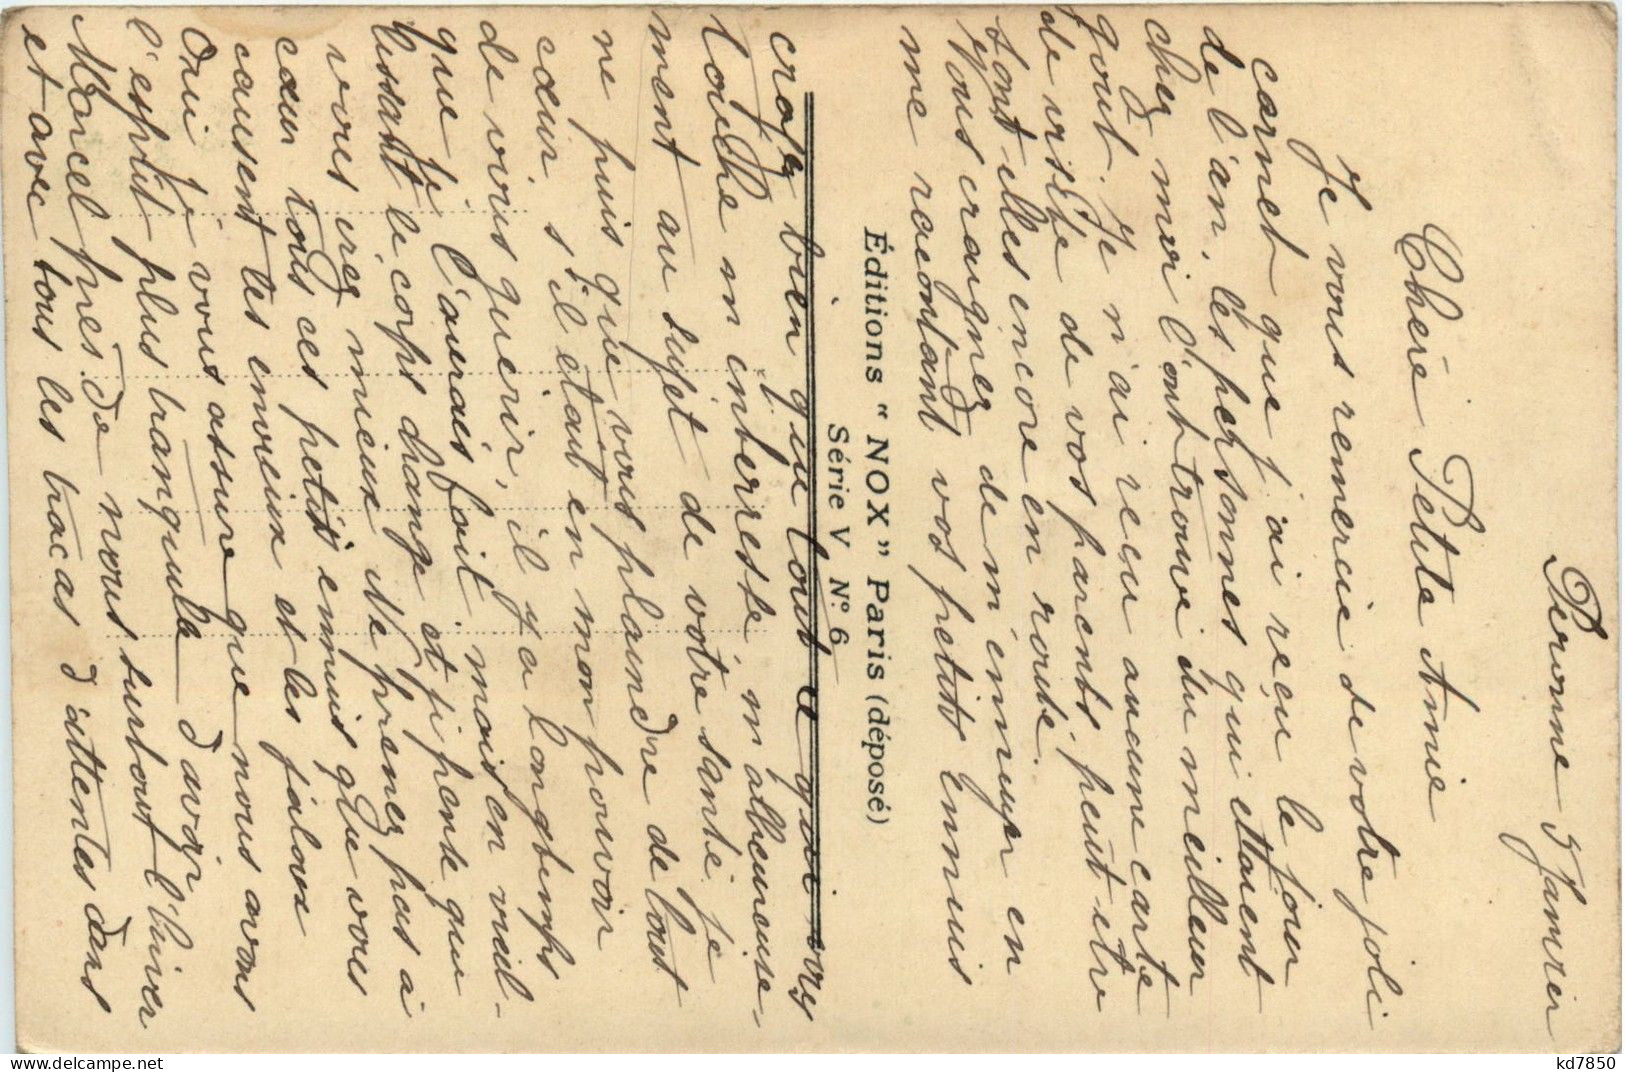 Peronne 5 Janvier
Chère Petite Amie
Je vous remercie de votre joli
carnet que j'ai reçu le jour
de l'an, les personnes qui étaient
chez moi l'ont trouvé du meilleur
gout. Je n'ai recu aucune carte
de visite de vos parents peut etre
sont elles encore en route.
Vous craignez de m'ennuyer en
me racontant vos petits ennuis
Éditions “ NOX ” Paris (déposé)
Série V Nº 6
croyez bien que tout ce qui vous
touche m'interresse, malheureuse-
ment au sujet de votre santé je
ne puis que vous plaindre de tout
cœur, s'il était en mon pouvoir
de vous guerir, il y a longtemps
que je l'aurais fait, mais en vieil-
lissant le corps change et je pense que
vous irez mieux. Ne prenez pas à
cœur tous ces petits ennuis que vous
causent les envieux et les jaloux
Oui je vous assure que nous avons
l'esprit plus tranquille d'avoir
Marcel près de nous surtout l'hiver
et avec tous les tracas d'attentes dans
kd7850